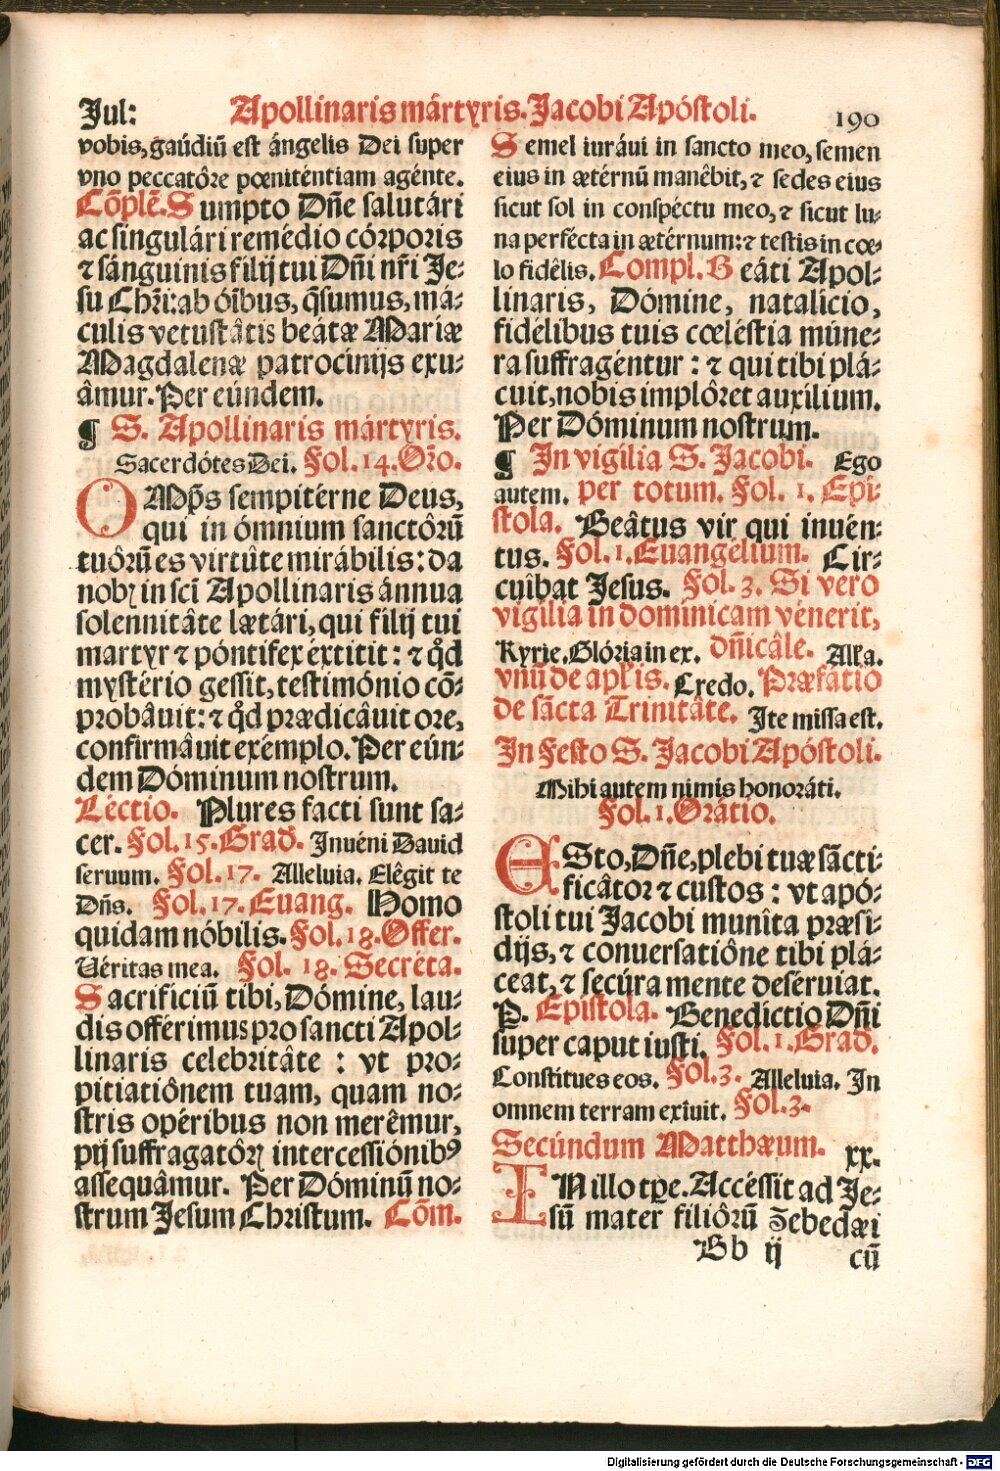 Jul: Apollinaris mártyris. Jacobi Apóstoli. 190
vobis, gaúdiũ est ángelis Dei super
vno peccatôre pœniténtiam agénte.
Cõplẽ. Sumpto Dñe salutári
ac singulári remédio córporis
⁊ sánguinis filij tui Dñi nr̃i Je-
su Chr̃i: ab óĩbus, q̃sumus, má-
culis vetustâtis beátæ Mariæ
Magdalenæ patrocínijs exu-
âmur. Per eúndem.
¶ S. Apollinaris mártyris.
Sacerdótes Dei. Fol. 14. Orõ.
OMp̃s sempitérne Deus,
qui in ómnium sanctôrũ
tuôrũ es virtûte mirábilis: da
nobꝫ in sc̃i Apollinaris ánnua
solennitâte lætári, qui filij tui
martyr ⁊ póntifex éxtitit: ⁊ q̊d
mystério gessit, testimónio cõ-
probâuit: ⁊ q̊d prædicâuit ore,
confirmâuit exémplo. Per eún-
dem Dóminum nostrum.
Léctio. Plures facti sunt sa-
cer. Fol. 15. Grad. Inuéni David
seruum. Fol. 17. Alleluia. Elêgit te
Dñs. Fol. 17. Euang. Homo
quidam nóbilis. Fol. 18. Offer.
Véritas mea. Fol. 18. Secréta.
Sacrificiũ tibi, Dómine, lau-
dis offérimus pro sancti Apol-
linaris celebritâte: vt pro-
pitiatiônem tuam, quam no-
stris opéribus non merêmur,
pij suffragatôrꝫ intercessiónibꝰ
assequâmur. Per Dóminũ no-
strum Jesum Christum. Cõm.
Semel iuráui in sancto meo, semen
eius in ætérnũ manêbit, ⁊ sedes eius
sicut sol in conspéctu meo, ⁊ sicut lu-
na perfécta in ætérnum: ⁊ testis in cœ-
lo fidêlis. Compl. Beáti Apol-
linaris, Dómine, natalício,
fidélibus tuis cœléstia múne-
ra suffragéntur: ⁊ qui tibi plá-
cuit, nobis implôret auxílium.
Per Dóminum nostrum.
¶ In vigília S. Jacobi. Ego
autem. per totum. Fol. 1. Epí-
stola. Beâtus vir qui inuén-
tus. Fol. 1. Euangélium. Cir-
cuîbat Jesus. Fol. 3. Si vero
vigília in domínicam vénerit,
Kyrie. Glória in ex. dñicâle. Alľa.
vnũ de apľis. Credo. Præfatio
de sãcta Trinitâte. Ite missa est.
In Festo S. Jacobi Apóstoli.
Mihi autem nimis honoráti.
Fol. 1. Orátio.
ESto, Dñe, plebi tuæ sãcti-
ficâtor ⁊ custos: vt apó-
stoli tui Jacobi munîta præsí-
dijs, ⁊ conuersatiône tibi plá-
ceat, ⁊ secúra mente desérviat.
P. Epístola. Benedíctio Dñi
super caput iusti. Fol. 1. Grad.
Constítues eos. Fol. 3. Alleluia. In
omnem terram exîuit. Fol. 3.
Secúndum Matthæum. xx.
IN illo tp̃e. Accéssit ad Je-
sũ mater filiôrũ Zebedæi
Bb ij cũ
Digitalisierung gefördert durch die Deutsche Forschungsgemeinschaft - DFG